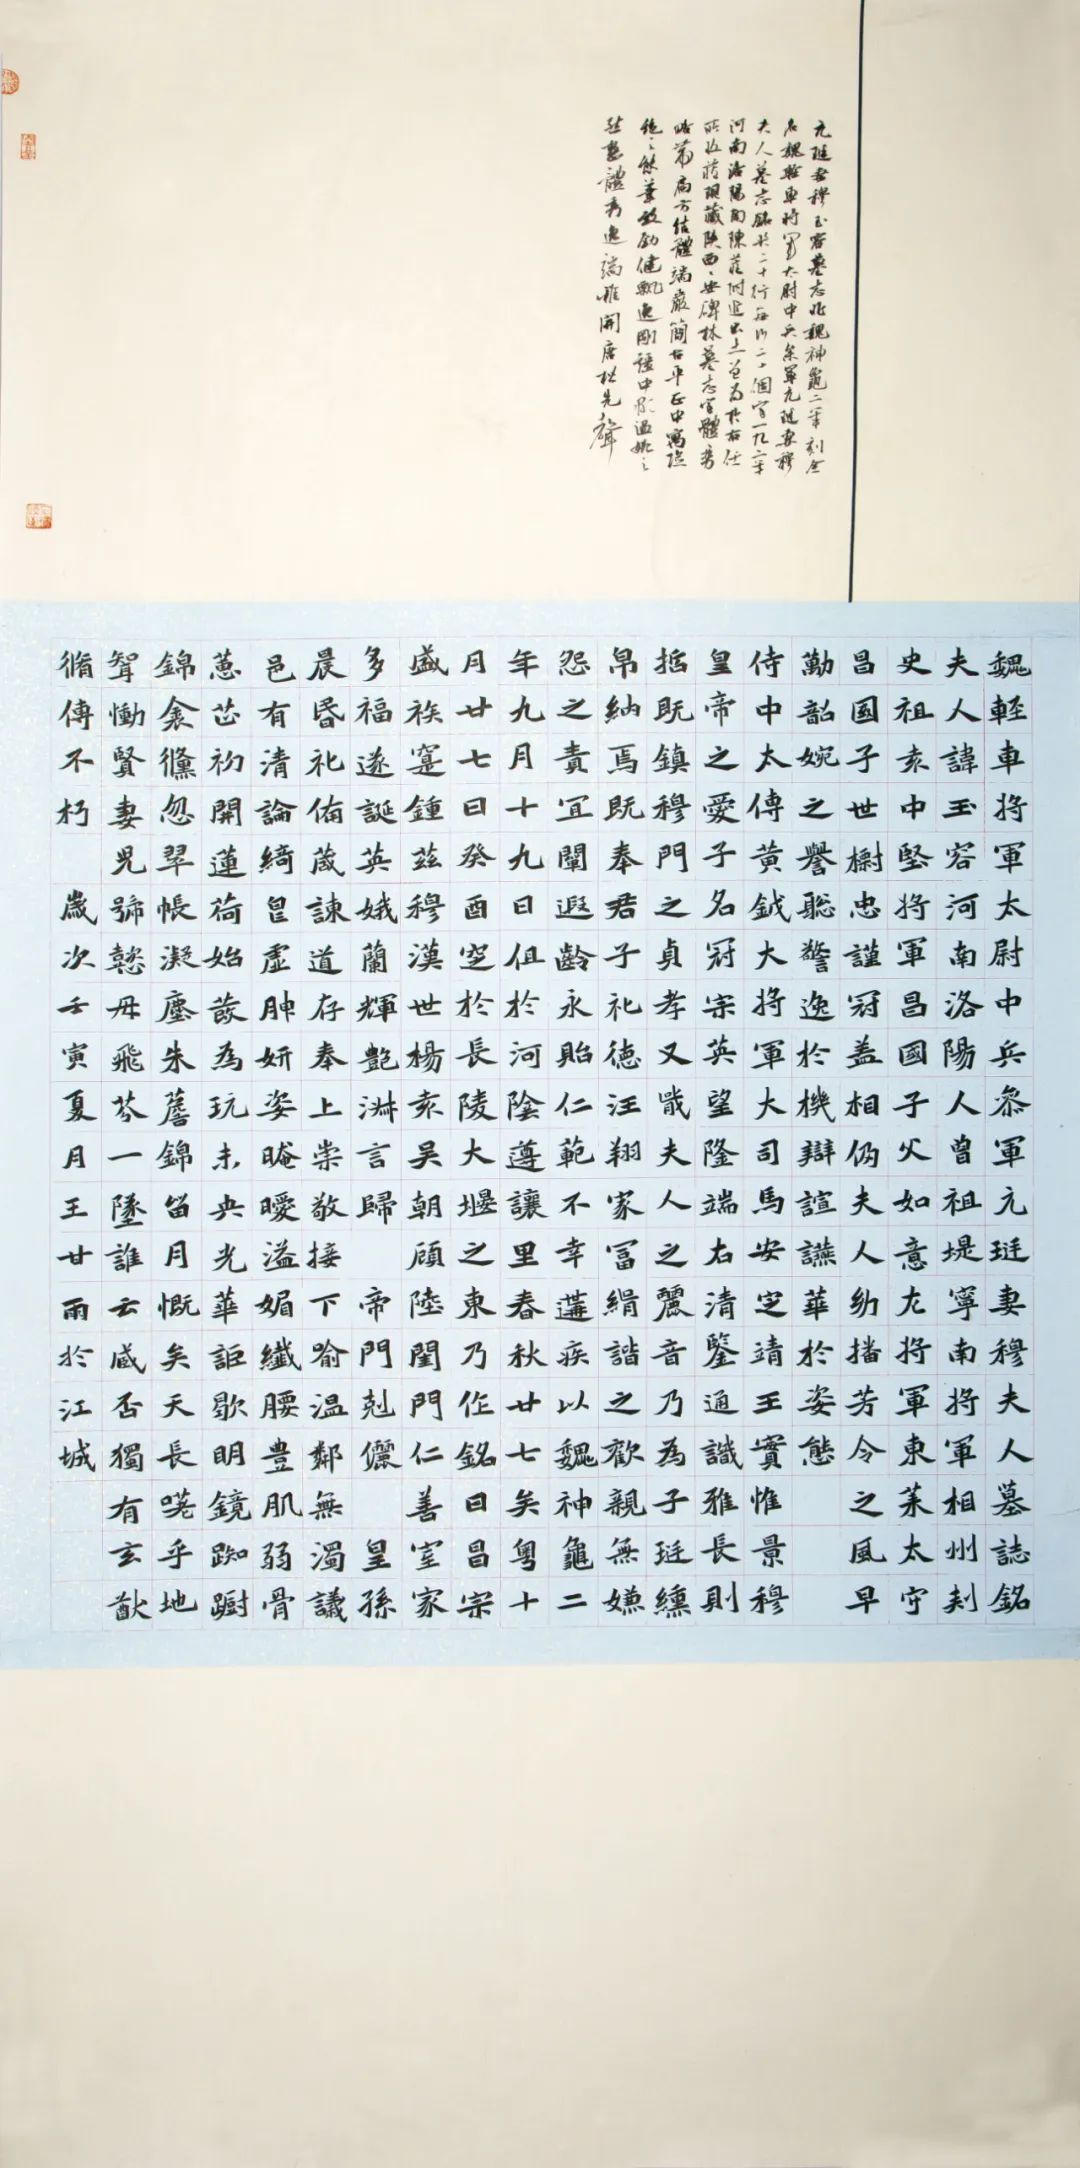 元珽妻穆玉容墓志北魏神龜二年刻全
名魏輕車將軍太尉中兵參軍元珽妻穆
夫人墓志銘共二十行每行二十個字一九二二年
河南洛陽南陳莊附近出土曾為于右任
所收藏現藏陝西西安碑林墓志字體秀
略帶扁方結體端嚴簡古平正中寓險
絕之態筆致勁健飄逸剛強中形溫婉之
態整體秀逸端雅開唐楷先聲
魏輕車將軍太尉中兵叅軍元珽妻穆夫人墓誌銘
夫人諱玉容河南洛陽人曾祖堤寧南將軍相州刾
史祖亥中堅將軍昌國子父如意左將軍東萊太守
昌國子世樹忠謹冠盖相仍夫人幼播芳令之風早
勤韶婉之譽聡警逸於機辯諠讌華於姿態
侍中太傅黃鉞大將軍大司馬安定靖王實惟景穆
皇帝之愛子名冠宗英望隆端右清鑒通識雅長則
括既鎮穆門之貞孝又戢夫人之麗音乃為子珽纁
帛納焉既奉君子礼德汪翔家冨絹諧之歡親無嫌
怨之責宜闡遐齡永貽仁範不幸遘疾以魏神龜二
年九月十九日徂於河陰遵讓里春秋廿七矣粤十
月廿七日癸酉窆於長陵大堰之東乃作銘曰昌宗
盛族寔鍾茲穆漢世楊亥吴朝頋陸閨門仁善室家
多福遂誕英娥蘭輝艶淋言歸帝門剋儷皇孫
晨昬礼俻葴諫道存奉上崇敬接下喻温鄰無濁議
邑有清論綺皃虛胂妍姿晻曖溢媚纖腰豊肌弱骨
蕙芷初開蓮荷始蕟為玩未央光華詎歇明鏡踟躕
錦衾儻忽翠帳凝塵朱簷錦笛月慨矣天長嘆乎地
聟慟賢妻兒號慈毋飛芬一墜誰云臧否獨有玄猷
脩傳不朽歲次壬寅夏月王廿雨於江城